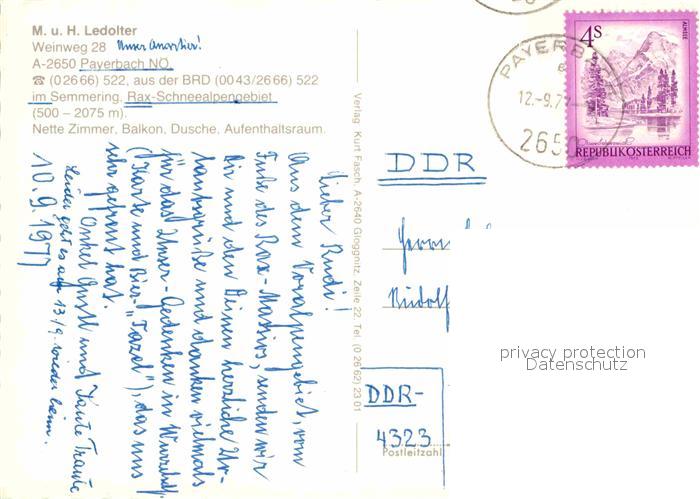 M. u. H. Ledolter
Weinweg 28 Unser Quartier!
A-2650 Payerbach NÖ.
☎ (0 26 66) 522, aus der BRD (00 43/26 66) 522
im Semmering, Rax-Schneealpengebiet
(500 – 2075 m).
Nette Zimmer, Balkon, Dusche, Aufenthaltsraum.
Lieber Rudi!
Aus dem Voralpengebiet, vom
Fuße des Rax-Massivs, senden wir
Dir und den Deinen herzliche Ur-
laubsgrüße und danken vielmals
für das Unser-Gedenken in Wurzbach
(Karte und Bier-"Tazel"), das uns
sehr gefreut hat.
Onkel Gustl und Tante Traute
Leider geht es am 13/9. wieder heim.
10.9.1977
Verlag Kurt Fasch, A-2640 Gloggnitz, Zeile 22, Tel. (0 26 62) 23 01
PAYERBACH
12.-9.77
2650
4 S
ALMSEE
REPUBLIK ÖSTERREICH
DDR
Herrn
Rudolf
privacy protection
Datenschutz
DDR-
4323
Postleitzahl